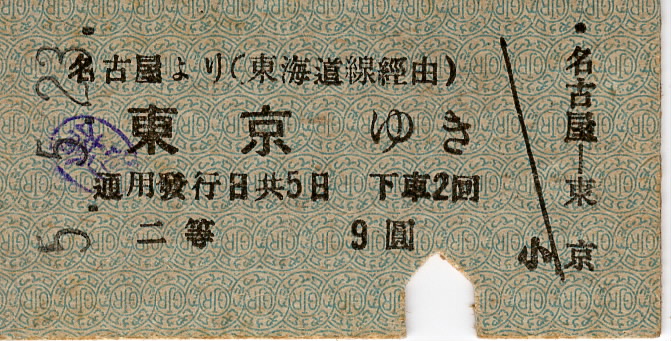 名古屋より(東海道線經由)
東京ゆき
通用發行日共5日 下車2回
二等 9圓
5.5.23
名古屋―東京
小